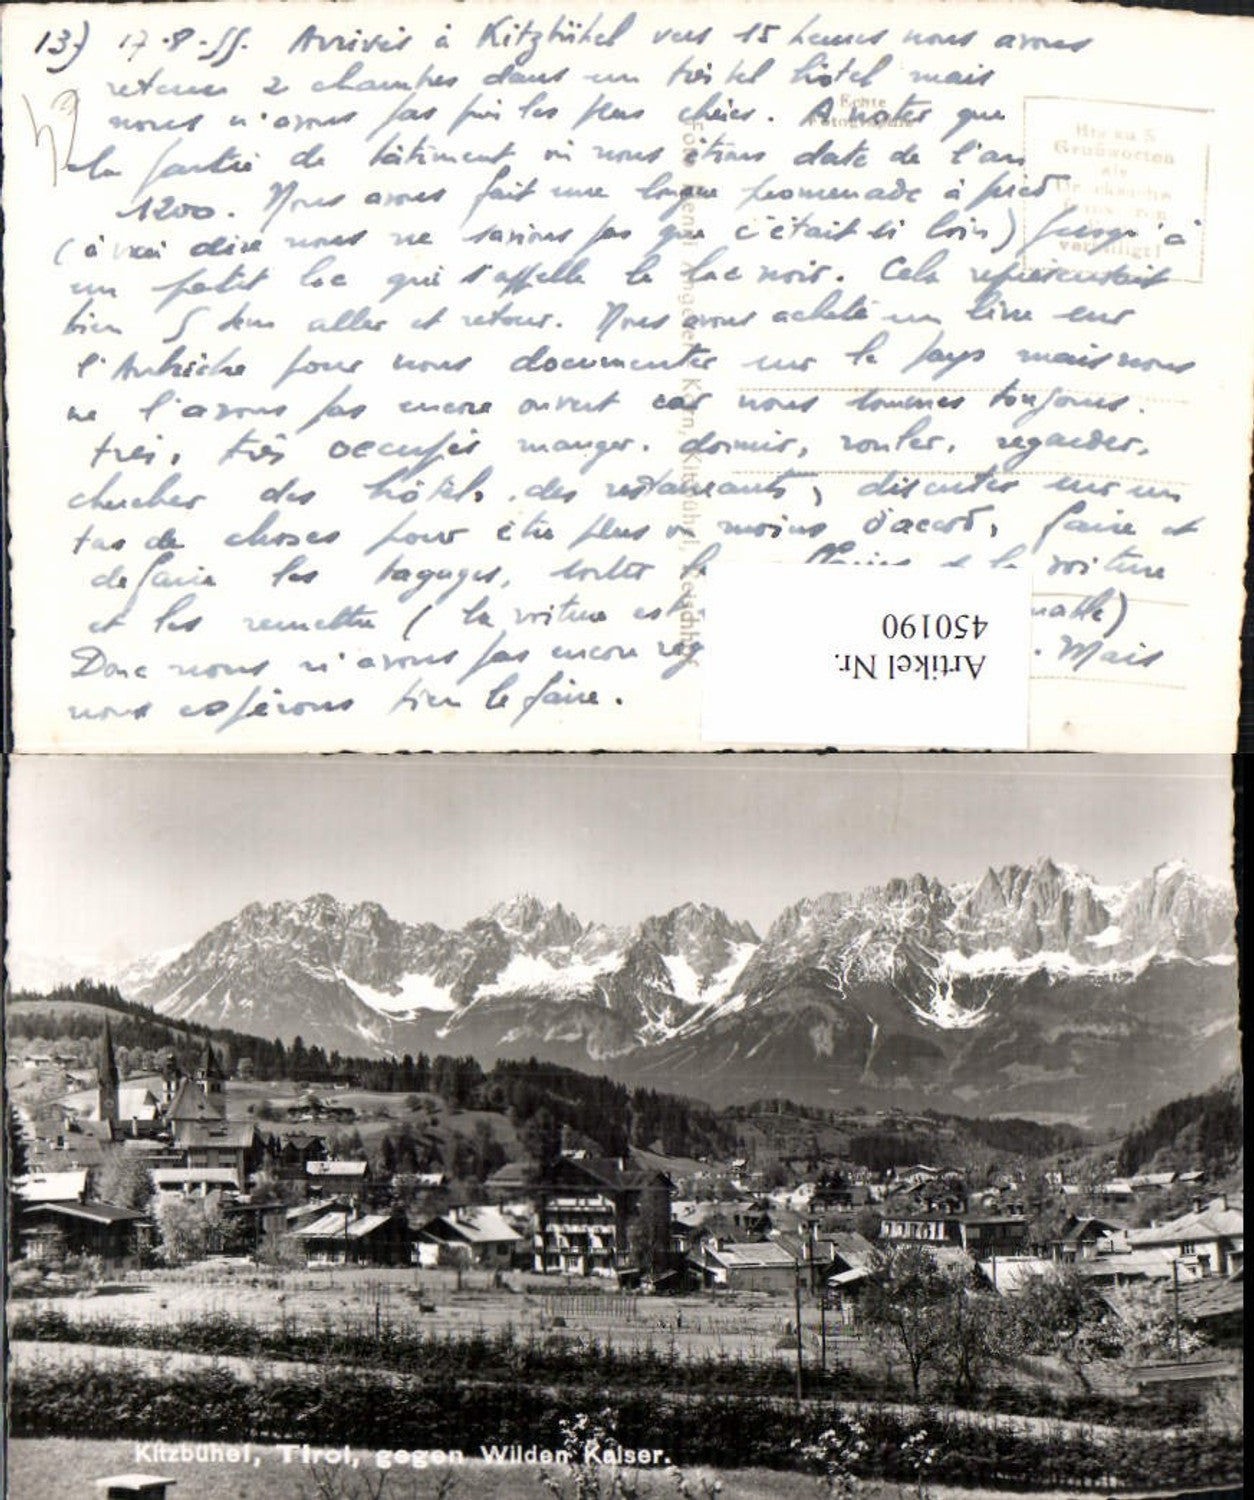 13) 17.8.55. Arrivés à Kitzbühel vers 15 heures nous avons
retenu 2 chambres dans un très bel hôtel mais
nous n'avons pas pris les plus chères. A noter que
la partie du bâtiment où nous étions date de l'an
1200. Nous avons fait une longue promenade à pied
(à vrai dire nous ne savions pas que c'était si loin) jusqu'à
un petit lac qui s'appelle le lac noir. Cela représentait
bien 5 km aller et retour. Nous avons acheté un livre sur
l'Autriche pour nous documenter sur le pays mais nous
ne l'avons pas encore ouvert car nous sommes toujours.
très, très occupés manger. dormir, rouler, regarder,
chercher des hôtels, des restaurants, discuter sur un
tas de choses pour être plus ou moins d'accord, faire et
défaire les bagages, sortir la voiture
et les remettre (la voiture est
Donc nous n'avons pas encore . Mais
nous espérons bien le faire.
Echte
Fotographie
Bis zu 5
Grußworten
als
Drucksache
verbilligt!
Artikel Nr.
450190
Kitzbühel, Tirol, gegen Wilden Kaiser.